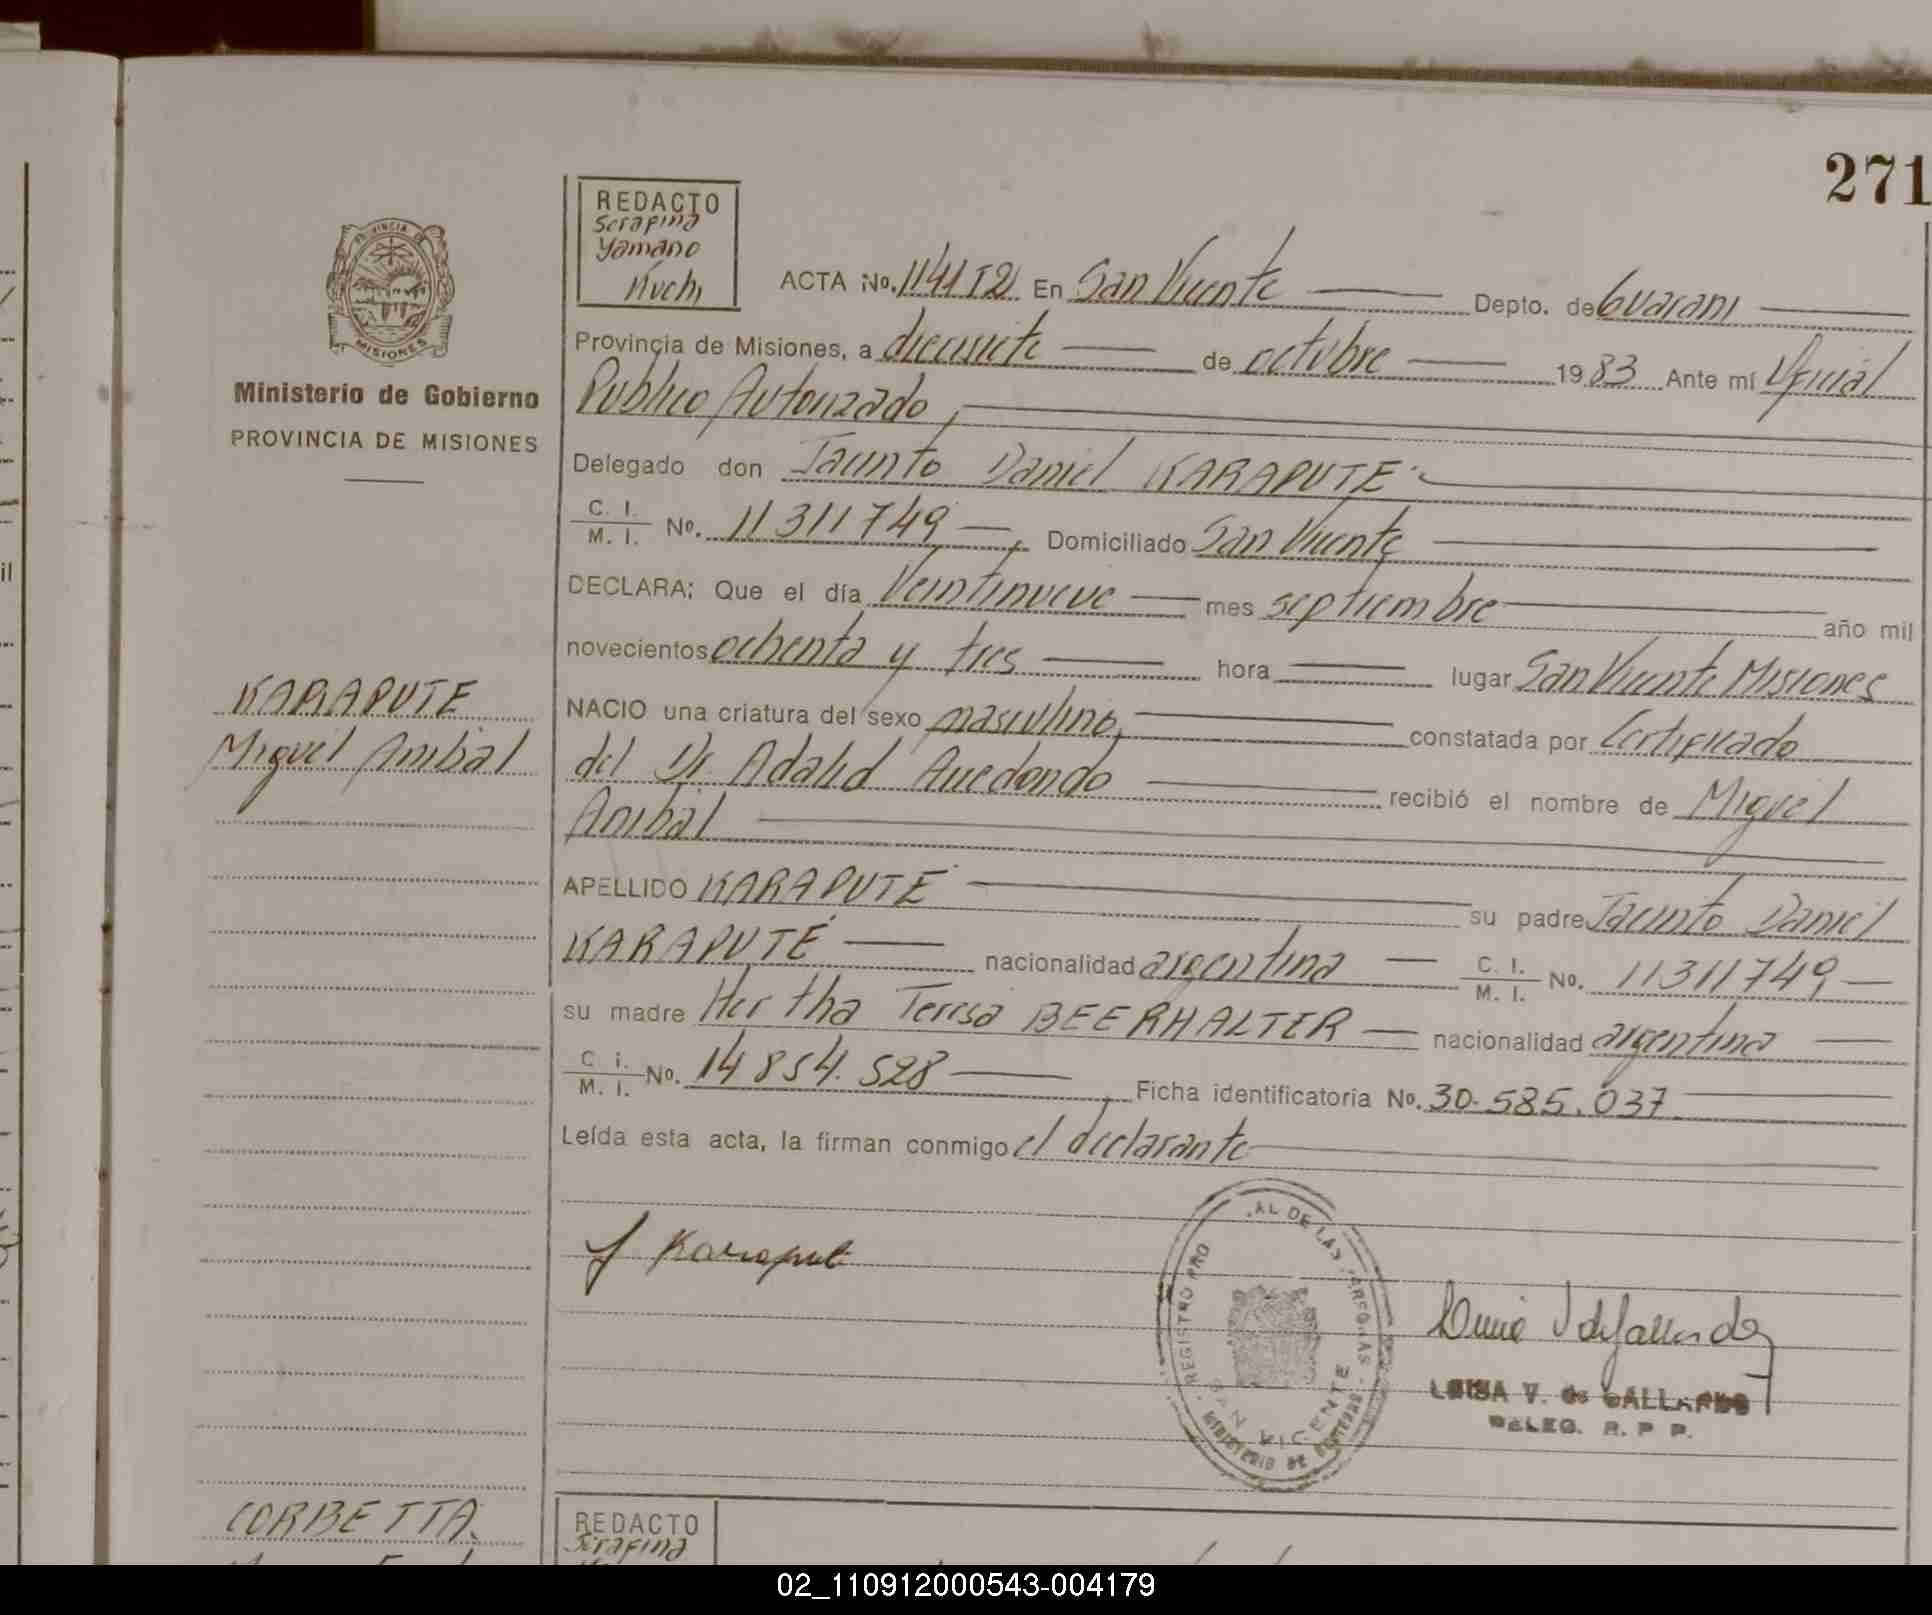 271
REDACTO
Serafina
Yamano
Kuchi
PROVINCIA DE
MISIONES
Ministerio de Gobierno
PROVINCIA DE MISIONES
ACTA No. 1141 T2) En San Vicente Depto. de Guarani
Provincia de Misiones, a diecisiete de octubre 1983 Ante mí Oficial
Publico Autorizado,
Delegado don Jacinto Daniel KARAPUTE
C. I. / M. I. No. 11311749 —, Domiciliado San Vicente
DECLARA: Que el día Veintinueve mes septiembre año mil
novecientos ochenta y tres hora lugar San Vicente Misiones
NACIO una criatura del sexo masculino, constatada por Certificado
del Dr. Adalid Arredondo recibió el nombre de Miguel
Anibal
APELLIDO KARAPUTE su padre Jacinto Daniel
KARAPUTE nacionalidad argentina C. I. / M. I. No. 11311749
su madre Hertha Teresa BEERHALTER nacionalidad argentina
C i. / M. I. No. 14854.528, Ficha identificatoria No. 30.585.037
Leída esta acta, la firman conmigo el declarante
KARAPUTE
Miguel Anibal
J Karaput
REGISTRO PRO AL DE LAS
SAN VICENTE
MINISTERIO DE GOBIERNO
LUISA V. de GALLARDO
DELEG. R. P P.
CORBETTA
REDACTO
Serafina
il
02_110912000543-004179